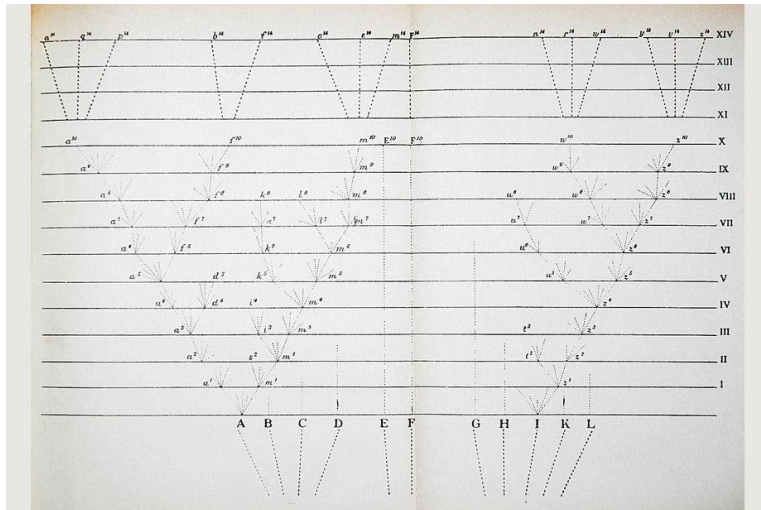 a¹⁴ q¹⁴ p¹⁴ b¹⁴ f¹⁴ o¹⁴ e¹⁴ m¹⁴ F¹⁴ n¹⁴ r¹⁴ w¹⁴ y¹⁴ v¹⁴ z¹⁴ XIV
XIII
XII
XI
a¹⁰ f¹⁰ m¹⁰ E¹⁰ F¹⁰ w¹⁰ z¹⁰ X
a⁹ f⁹ m⁹ w⁹ z⁹ IX
a⁸ f⁸ k⁸ l⁸ m⁸ u⁸ w⁸ z⁸ VIII
a⁷ f⁷ k⁷ l⁷ m⁷ u⁷ w⁷ z⁷ VII
a⁶ f⁶ k⁶ m⁶ u⁶ z⁶ VI
a⁵ d⁵ k⁵ m⁵ u⁵ z⁵ V
d⁴ i⁴ m⁴ z⁴ IV
a³ i³ m³ t³ z³ III
a² s² m² t² z² II
a¹ m¹ z¹ I
A B C D E F G H I K L